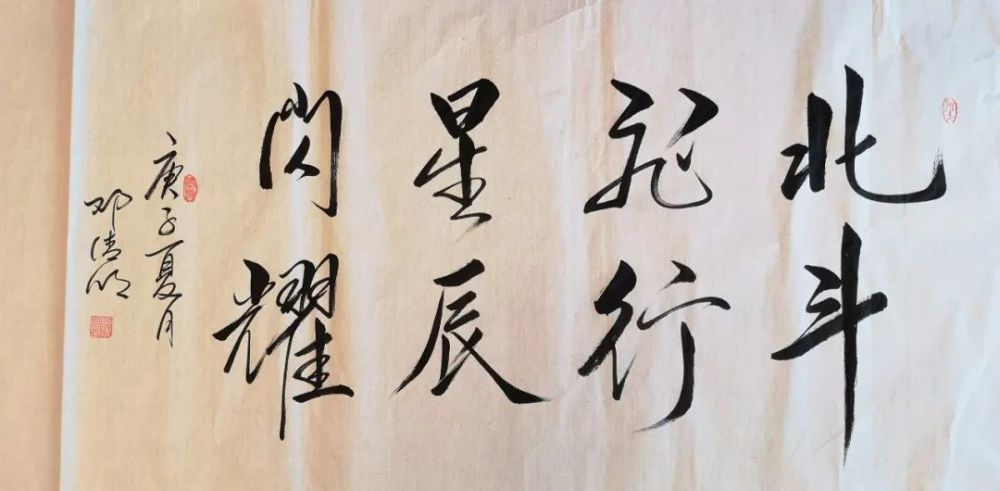 北斗
行
星辰
閃耀
庚子夏月
邓清明